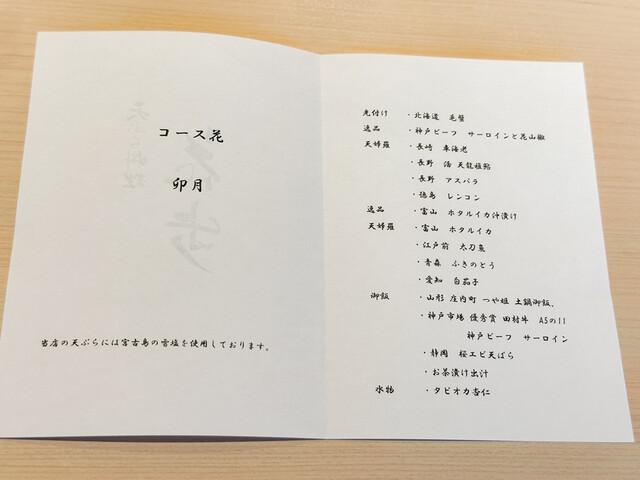 コース花
卯月
当店の天ぷらには宮古島の雪塩を使用しております。
先付け ・北海道 毛蟹
逸品 ・神戸ビーフ サーロインと花山椒
天婦羅 ・長崎 車海老
・長野 浩 天龍稚鮎
・長野 アスパラ
・徳島 レンコン
逸品 ・富山 ホタルイカ沖漬け
天婦羅 ・富山 ホタルイカ
・江戸前 太刀魚
・青森 ふきのとう
・愛知 白茄子
御飯 ・山形 庄内町 つや姫 土鍋御飯、
・神戸市場 優秀賞 田村牛 A5の11
神戸ビーフ サーロイン
・静岡 桜エビ天ばら
・お茶漬け出汁
水物 ・タピオカ杏仁
天ぷら料理